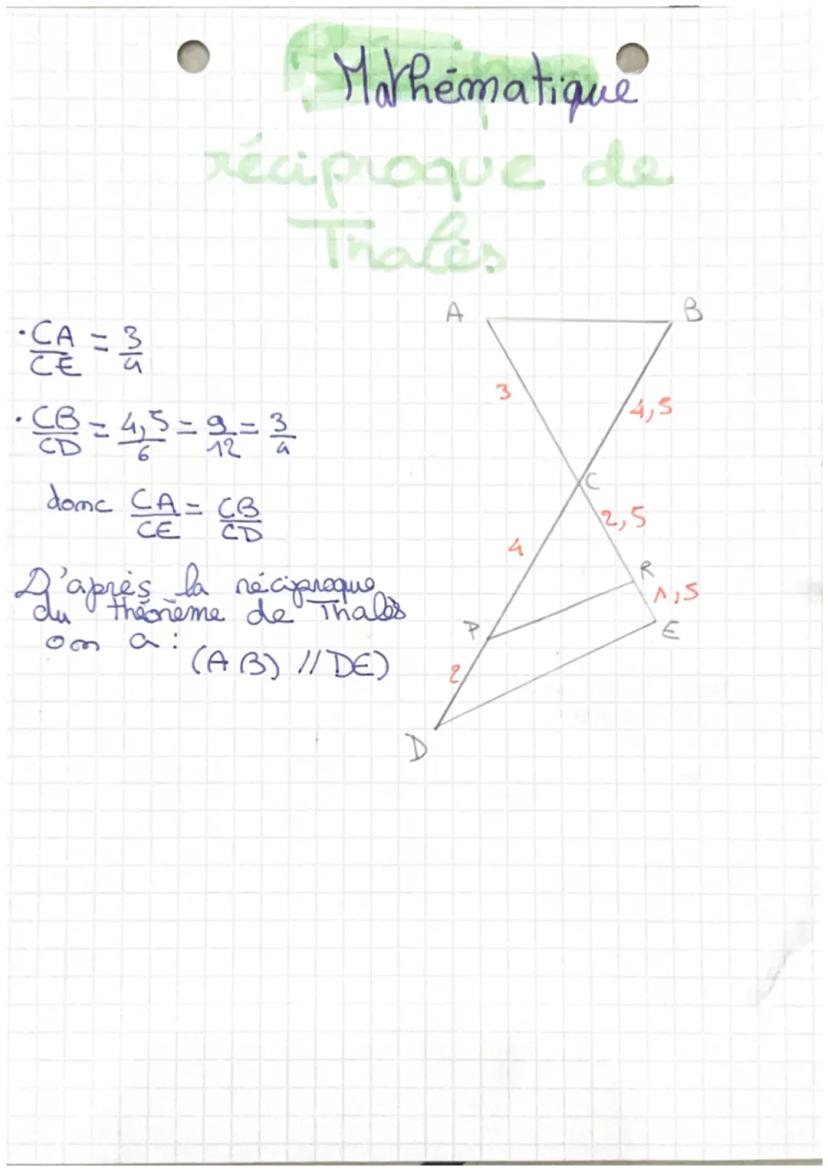 Mathématique
réciproque de
Thalès
• CA/CE = 3/4
• CB/CD = 4,5/6 = 9/12 = 3/4
donc CA/CE = CB/CD
D'après la réciproque
du théorème de Thalès
on a :
(AB) // DE)
A
B
3
4,5
C
2,5
4
R
1,5
P
E
2
D